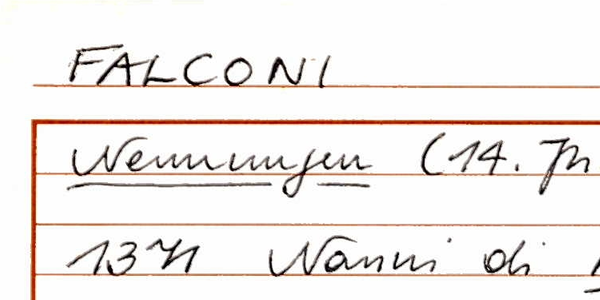 FALCONI
Nennungen (14. Jh
1371 Nanni di